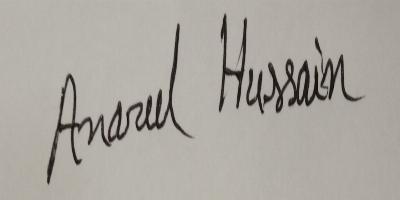 Anarul Hussain